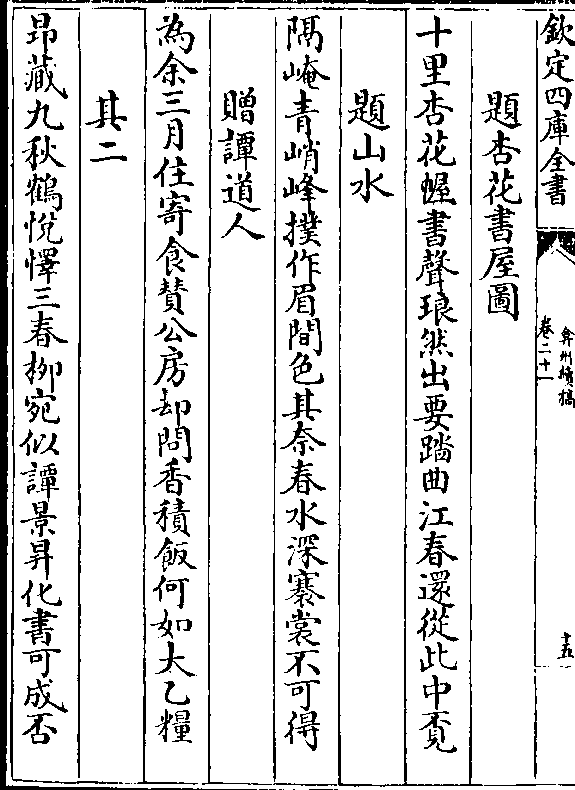 欽定四庫全書
弇州續稿
卷二十一
十五
題杏花書屋圖
十里杏花幄書聲琅然出要踏曲江春還從此中覔
題山水
隔崦青峭峰撲作眉間色其奈春水深褰裳不可得
贈譚道人
為余三月住寄食賛公房却問香積飯何如太乙糧
其二
昂藏九秋鶴悅懌三春栁宛似譚景昇化書可成否